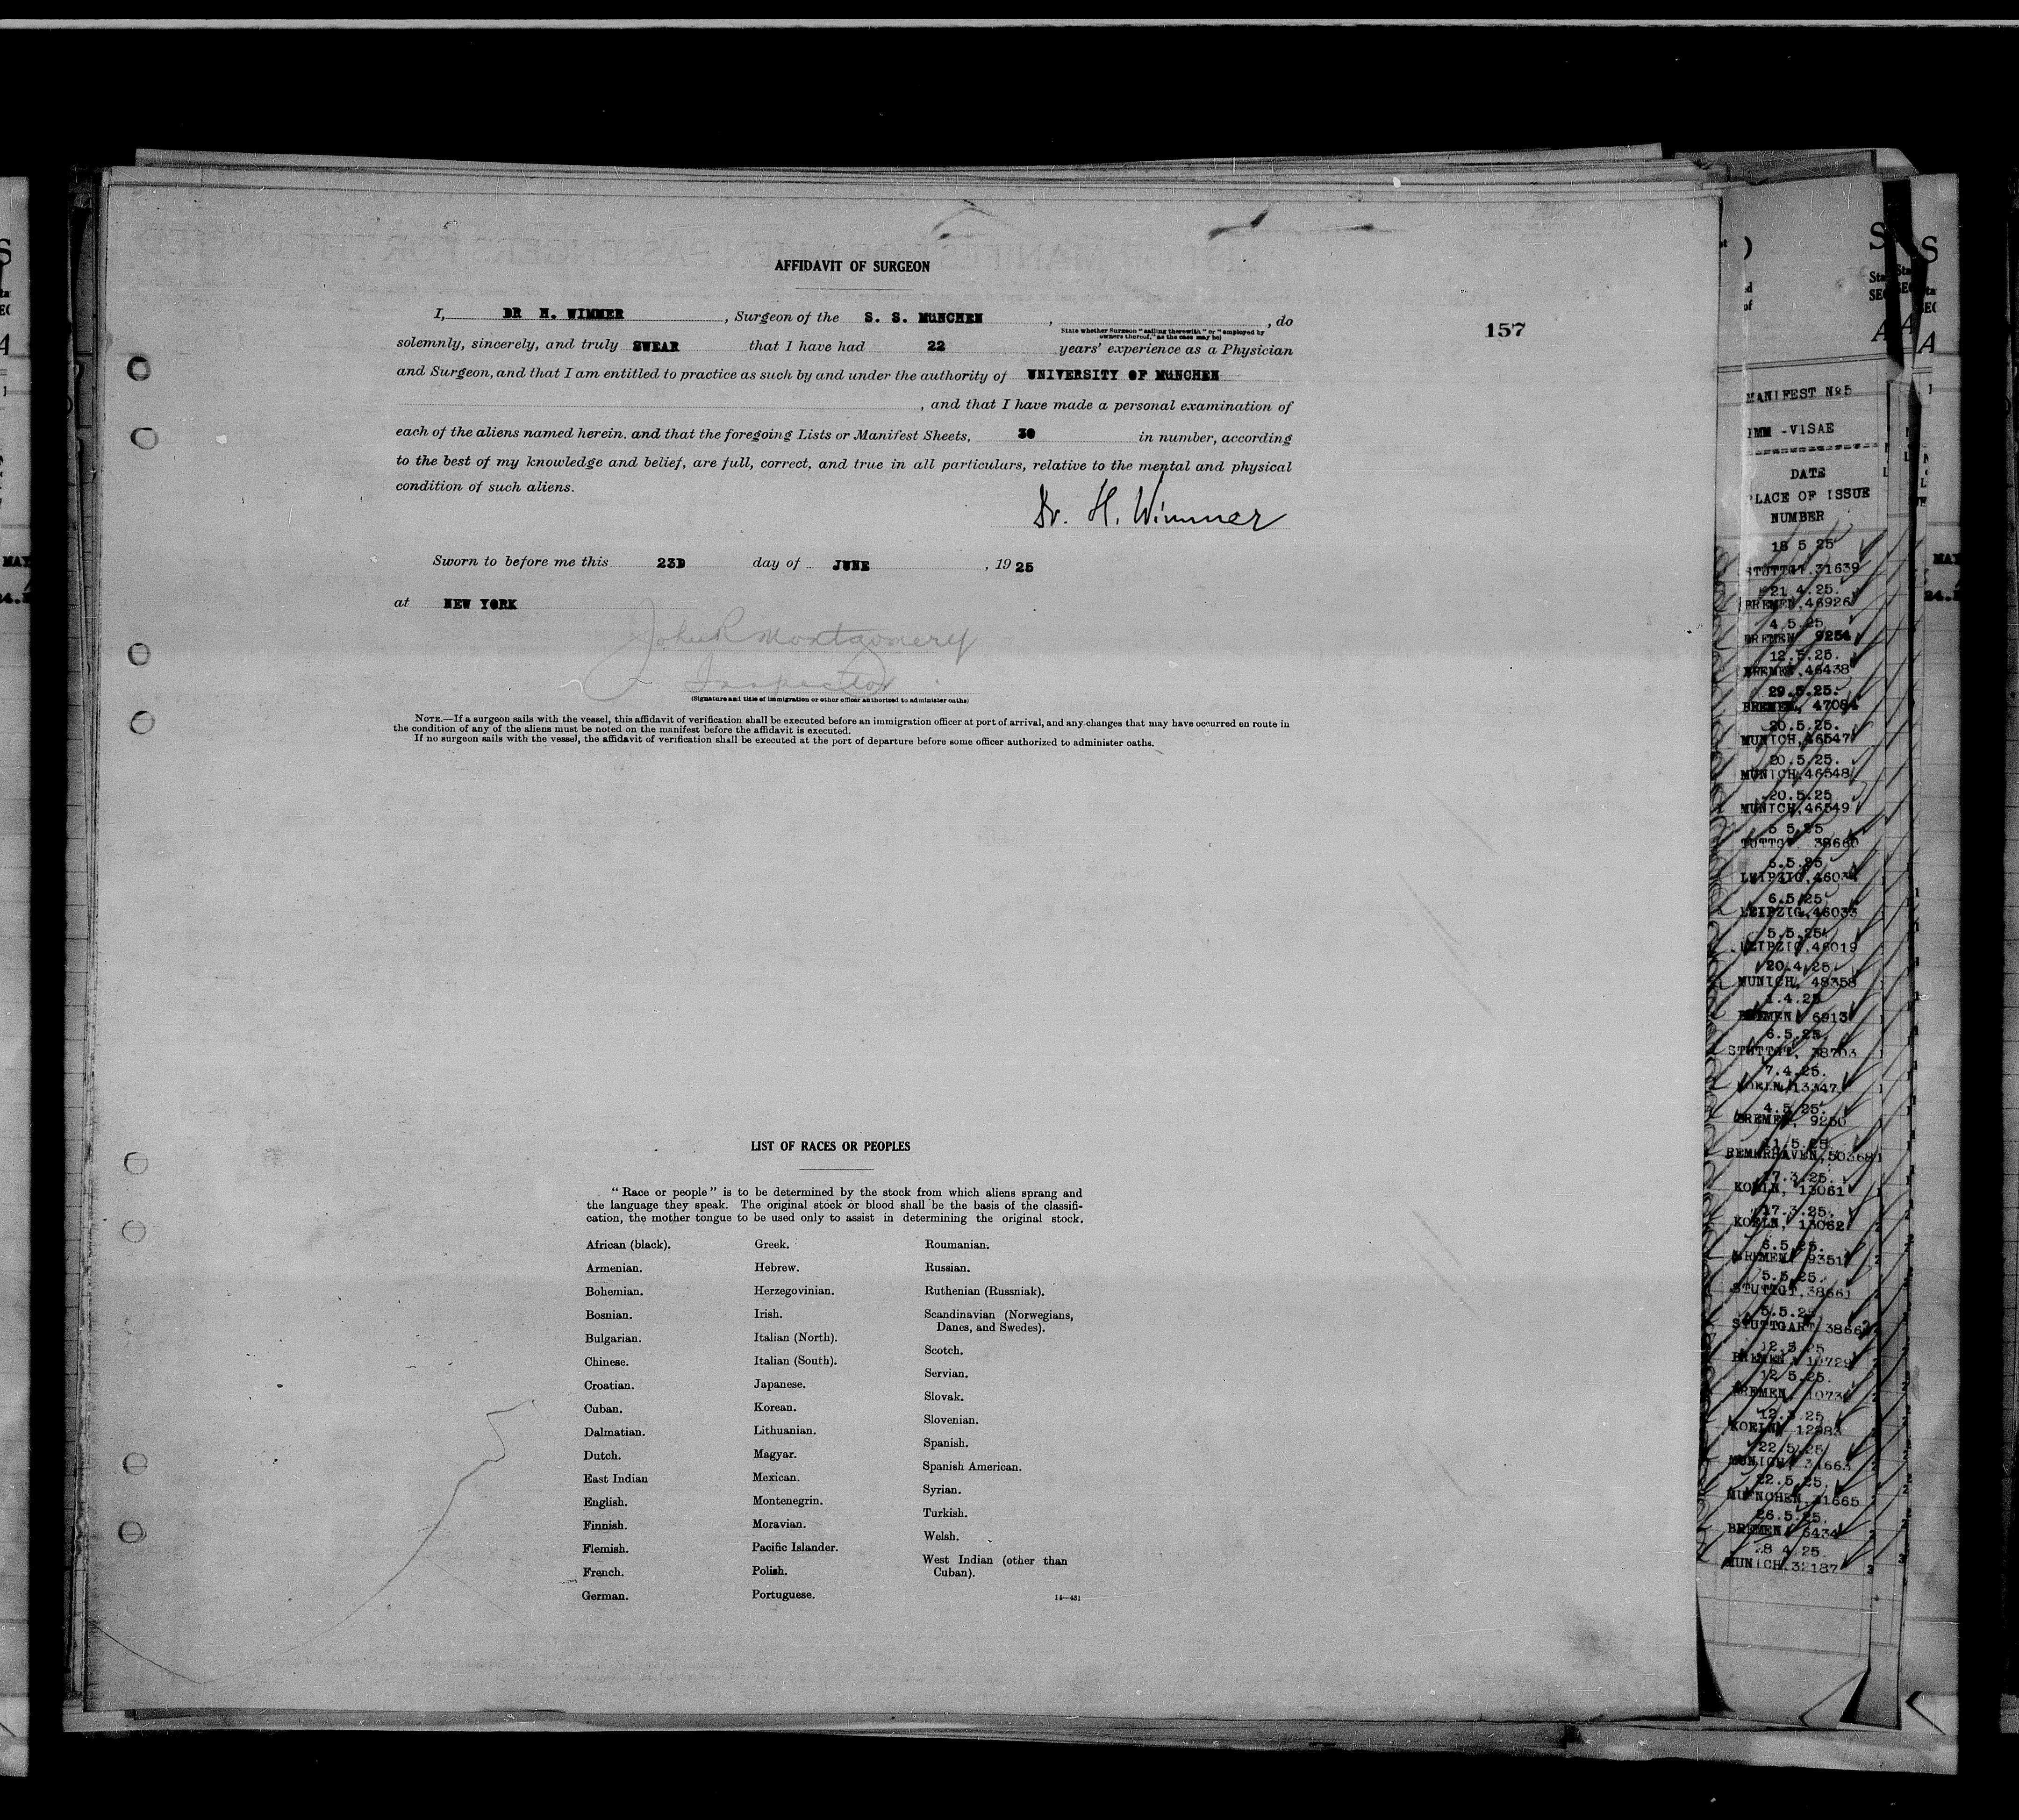 AFFIDAVIT OF SURGEON
I, DR H. WIMMER, Surgeon of the S. S. MüNCHEN, , do
State whether Surgeon "sailing therewith" or "employed by
owners thereof," as the case may be)
157
solemnly, sincerely, and truly SWEAR that I have had 22 years' experience as a Physician
and Surgeon, and that I am entitled to practice as such by and under the authority of UNIVERSITY OF MüNCHEN
, and that I have made a personal examination of
each of the aliens named herein, and that the foregoing Lists or Manifest Sheets, 30 in number, according
to the best of my knowledge and belief, are full, correct, and true in all particulars, relative to the mental and physical
condition of such aliens.
Dr. H. Wimmer
Sworn to before me this 23D day of JUNE, 1925
at NEW YORK
John R Montgomery
Inspector
(Signature and title of immigration or other officer authorized to administer oaths)
NOTE.—If a surgeon sails with the vessel, this affidavit of verification shall be executed before an immigration officer at port of arrival, and any changes that may have occurred en route in
the condition of any of the aliens must be noted on the manifest before the affidavit is executed.
If no surgeon sails with the vessel, the affidavit of verification shall be executed at the port of departure before some officer authorized to administer oaths.
LIST OF RACES OR PEOPLES
"Race or people" is to be determined by the stock from which aliens sprang and
the language they speak. The original stock or blood shall be the basis of the classifi-
cation, the mother tongue to be used only to assist in determining the original stock.
African (black).
Armenian.
Bohemian.
Bosnian.
Bulgarian.
Chinese.
Croatian.
Cuban.
Dalmatian.
Dutch.
East Indian
English.
Finnish.
Flemish.
French.
German.
Greek.
Hebrew.
Herzegovinian.
Irish.
Italian (North).
Italian (South).
Japanese.
Korean.
Lithuanian.
Magyar.
Mexican.
Montenegrin.
Moravian.
Pacific Islander.
Polish.
Portuguese.
Roumanian.
Russian.
Ruthenian (Russniak).
Scandinavian (Norwegians,
Danes, and Swedes).
Scotch.
Servian.
Slovak.
Slovenian.
Spanish.
Spanish American.
Syrian.
Turkish.
Welsh.
West Indian (other than
Cuban).
14—431
MANIFEST No5
IMM -VISAE
DATE
PLACE OF ISSUE
NUMBER
18 5 25
STUTTGT.31639
21 4.25.
BREMEN,46926
4.5.25
BREMEN 9254
12.5.25.
BREMEN,46438
29.5.25.
BREMEN, 47084
20.5.25.
MUNICH,46547
20.5.25.
MUNICH,46548
20.5.25
MUNICH,46549
5 5.25
TUTTGT. 38660
6.5.25
LEIPZIG,46034
6.5.25
LEIPZIG,46033
5.5.25
LEIPZIG,46019
20.4.25.
MUNICH, 48358
1.4.25
BREMEN 6913
6.5.25
STUTTGT, 38703
7.4.25.
KOELN,13347
4.5.25.
BREMEN, 9250
11.5.25.
REMERHAVEN,50368
17.3.25.
KOELN, 13061
17.3.25.
KOELN, 13062
6.5.25.
BREMEN, 9351
5.5.25.
STUTTGT,38661
5.5.25
STUTTGART,3866
12.5.25
BREMEN, 10729
12.5.25.
BREMEN, 1073
12.3.25
KOELN, 12983
22.5.25
MUNICH, 31663
22.5.25.
MUENCHEN,31665
26.5.25.
BREMEN, 6434
28 4.25.
MUNICH.32187